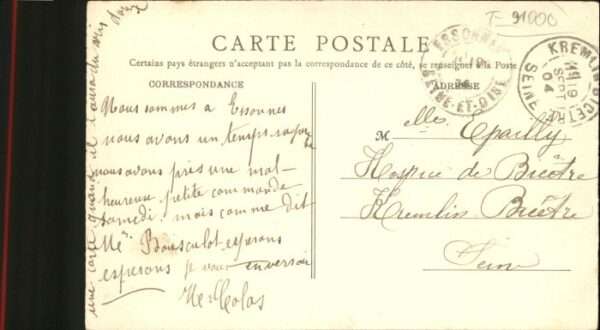 T-91000
CARTE POSTALE
Certains pays étrangers n'acceptant pas la correspondance de ce côté, se renseigner à la Poste
CORRESPONDANCE
ADRESSE
Nous sommes a Essonnes
nous avons un temps
nous avons pris une mal-
heureuse petite commande
samedi, mais comme dit
Bousculot esperons
esperons je vous enverrai
une carte quand il
M
elles Epailly
Hospice de Bicêtre
Kremlin Bicêtre
Seine
ESSONNES
SEINE-ET-OISE
KREMLIN-BICETRE
SEPT
04
SEINE